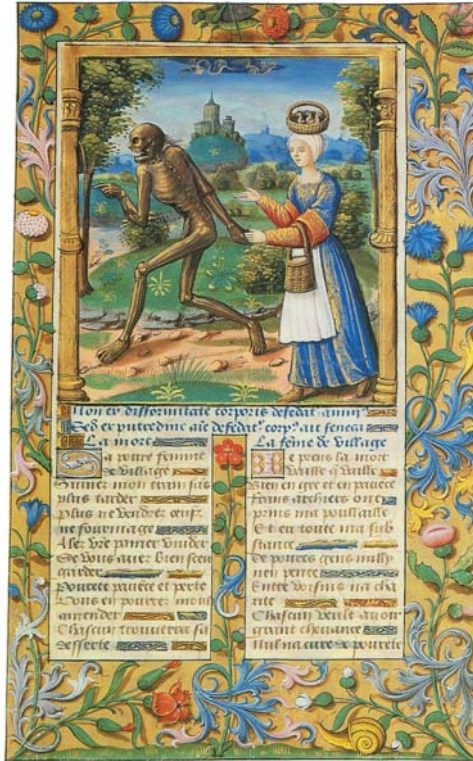 Non ex difformitate corporis defedat animi
Sed ex putredine aie defedat corp9 ait seneca
La mort
La feme de village
Sa povre femme
de village
Suivez mon train sãs
plus tarder
Plus ne vendrez oeufz
ne fourmage
Alez vre panier vuider
Se vous avez bien sceu
garder
Povrete pacièce et perte
Vous en pourrez moult
amender
Chascun trouvera sa
desserte
Je prens la mort
vaille q vaille
Bien en gre et en pacièce
Frans archiers ont
prins ma poullaille
Et en toute ma sub
stance
De povres gens nully
nen pence
Entre voisins na cha
rite
Chascun veult avoir
grant chevance
Nul na cure de povrete